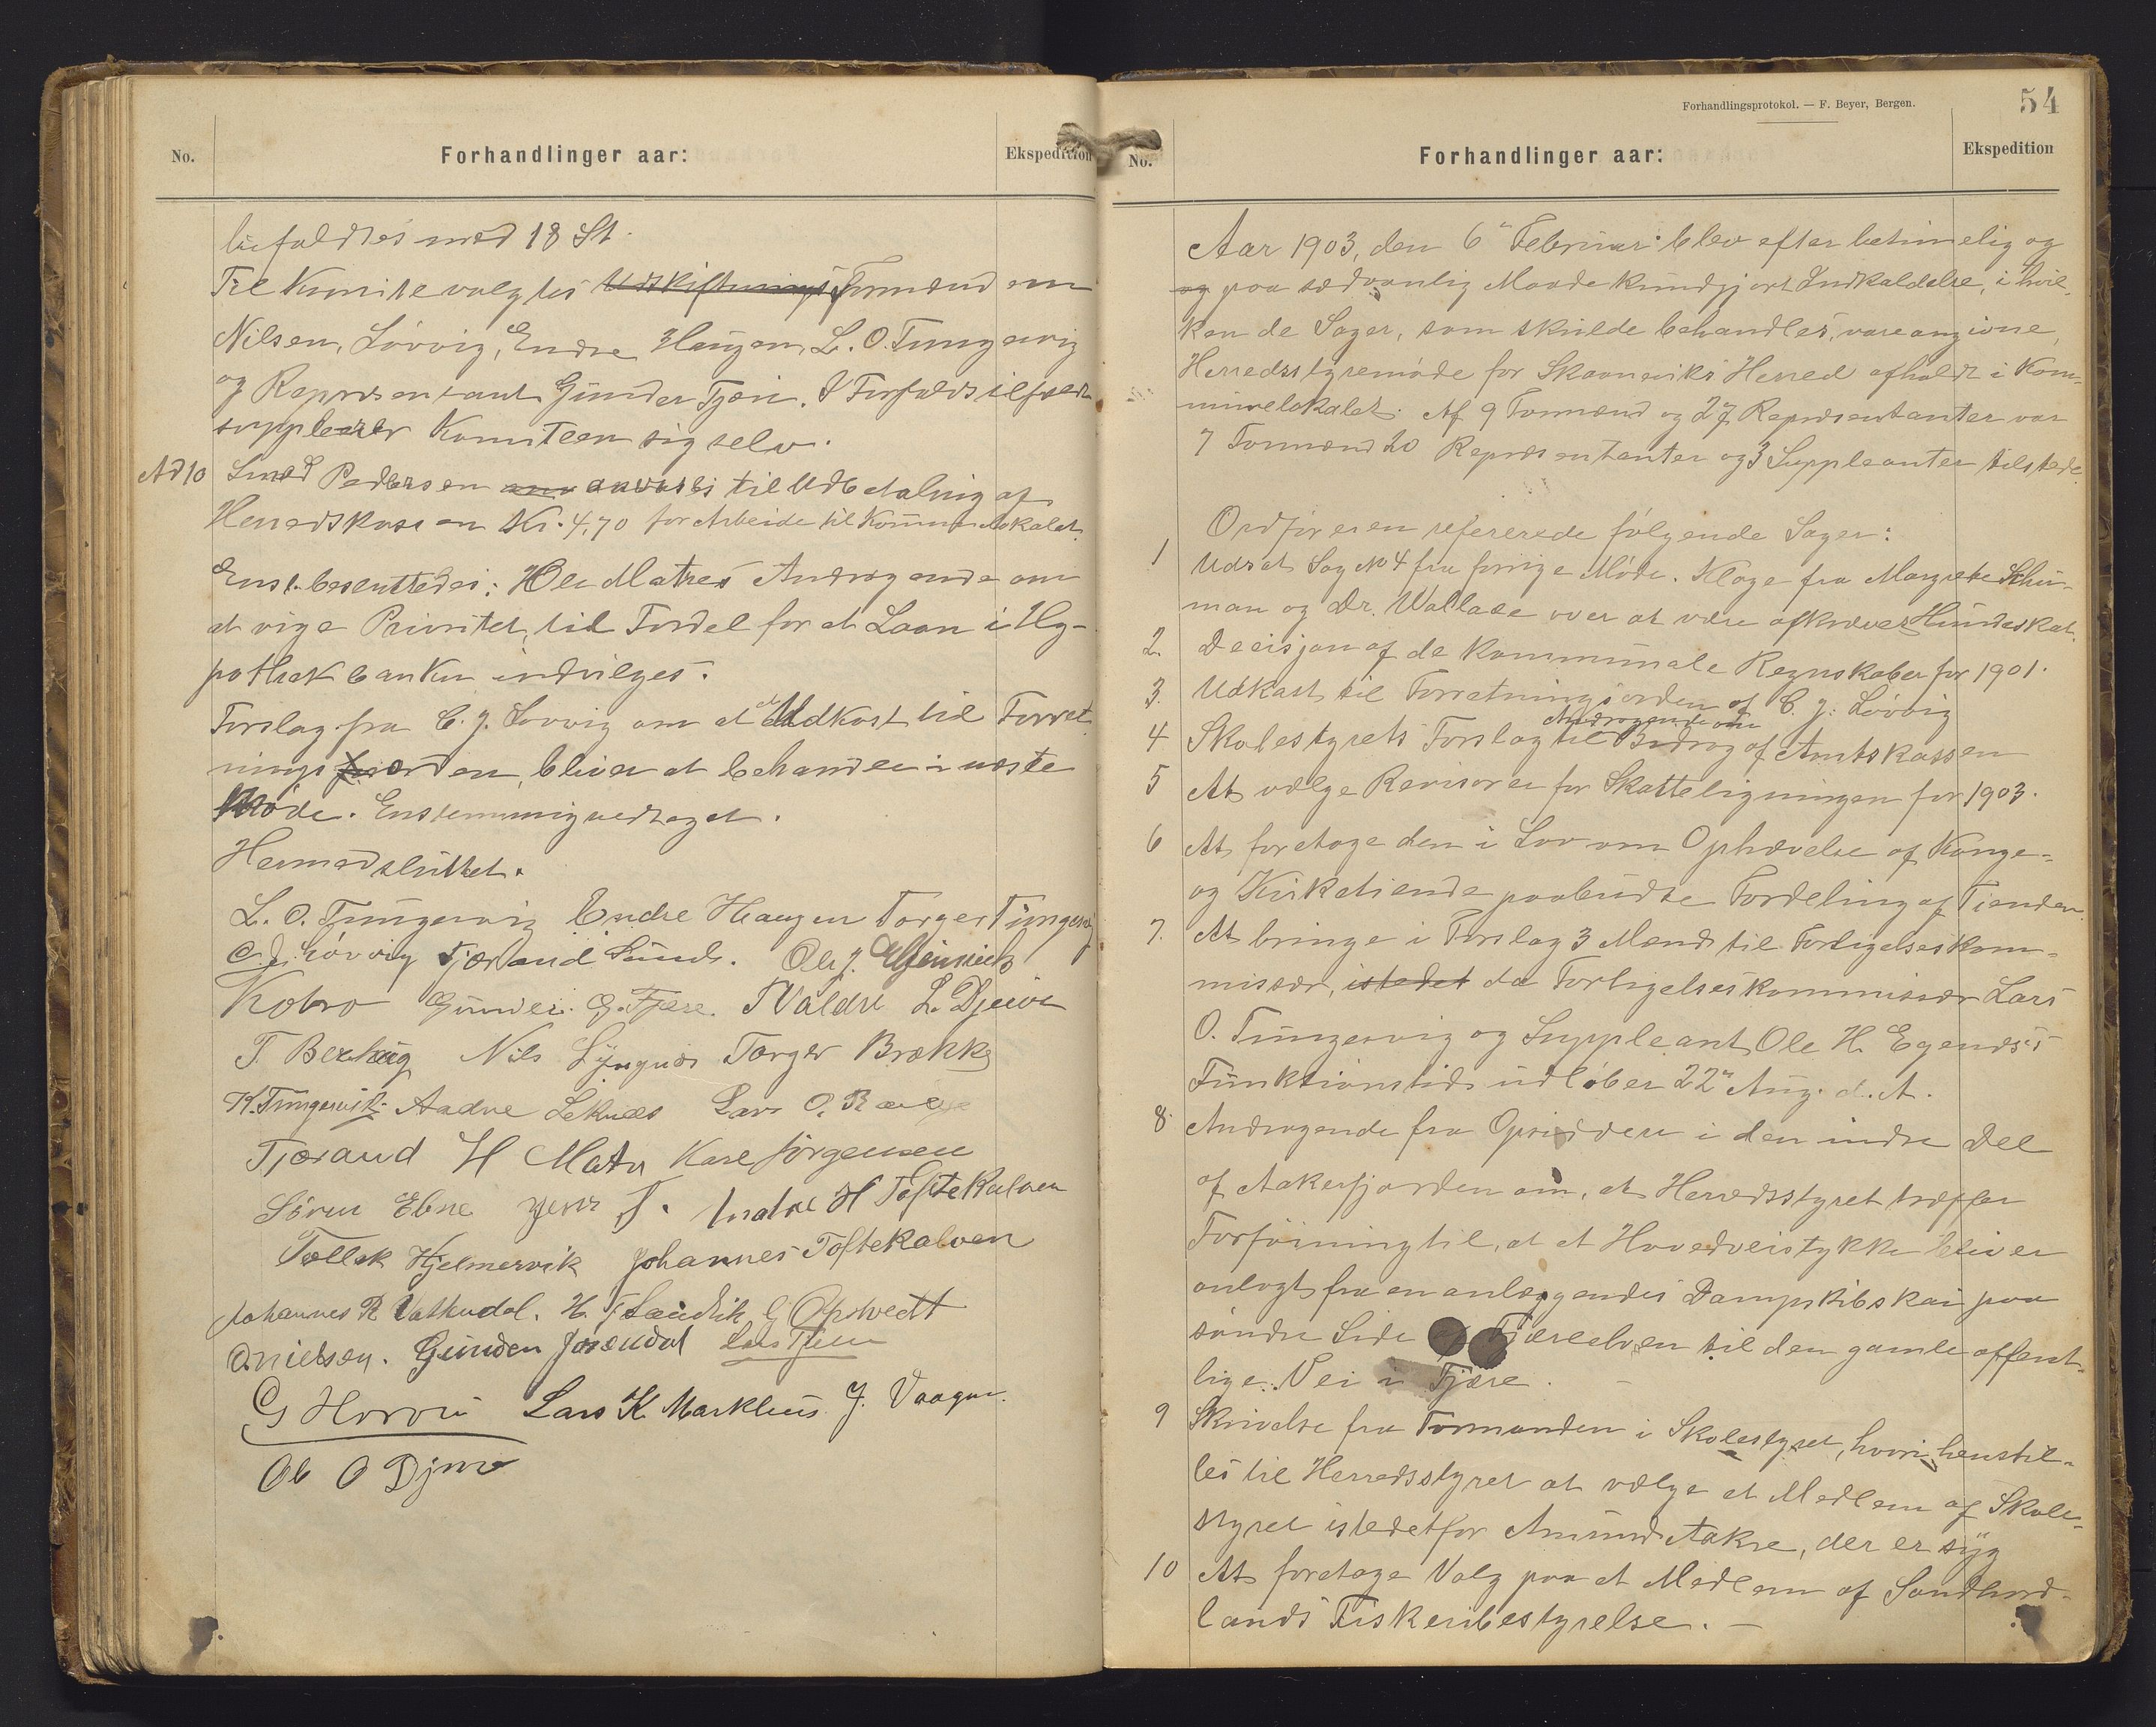 No.
Forhandlinger aar:
Ekspedition
bifaldtes med 18 St.
Til Komite valgtes Udskiftnings Formænd
Nilsen, Løvvig, Endre Haugen, L. O. Tungesvig
og Repræsentant Gunder Tjære. I Forfaldstilfælde
supplerer Komiteen sig selv.
Ad 10 Smed Pedersen anvises til Udbetaling af
Herredskassen Kr. 4,70 for Arbeide til Kommunelokalet.
Enst. besluttedes: Ole Matres Andragende om
at vige Prioritet til Fordel for et Laan i Hy-
pothekbanken indvilges.
Forslag fra C. J. Løvvig om at et Udkast til Forret-
nings orden bliver at behandle i næste
Møde. Enstemmig vedtaget.
Hermed sluttet.
L. O. Tungesvig Endre Haugen Torger Tungesvig
C. J. Løvvig Tjæraand Sund. Ole J.
Kobro Gunder G. Tjære. T Valdre L. Djuve
T. Berhaug Nils Lyngnæs Torger Brække
K. Tungesvik Aadne Leknæs Lars O.
Tjæraand H Matre Kare Jørgensen
Søren Ebne Jens T. Endre H Toftekalven
Tollak Hjelmervik Johannes Toftekalven
Johannes R Vatnedal. H. T Landvik G Opsvedt
O. Nielsen. Gunder Jøsendal Lars Tjære
G Horvei Lars K. Markhus J. Vaagen.
Ole O Djuve
Forhandlingsprotokol. — F. Beyer, Bergen.
54
No.
Forhandlinger aar:
Ekspedition
Aar 1903, den 6te Februar blev efter betimelig og
og paa sædvanlig Maade kundgjort Indkaldelse, i hvil-
ken de Sager, som skulde behandles, vare angivne,
Herredsstyremøde for Skaaneviks Herred afholdt i Kom-
munelokalet. Af 9 Formænd og 27 Repræsentanter var
7 Formænd 20 Repræsentanter og 3 Suppleanter tilstede.
Ordføreren refererede følgende Sager:
1 Udsat Sag No 4 fra forrige Møde. Klage fra Margrete Schu-
man og Dr. Wallace over at være afkrævet Hundeskat.
2. Decisjon af de kommunale Regnskaber for 1901.
3. Udkast til Forretningsorden af C. J. Løvvig
Andragende om
4 Skolestyrets Forslag til Bidrag af Amtskassen
5 At vælge Revisorer for Skatteligningen for 1903.
6 At foretage den i Lov om Ophævelse af Konge-
og Kirketiende paabudte Fordeling af Tienden.
7. At bringe i Forslag 3 Mænd til Forligelseskom-
missær, istedet da Forligelseskommissær Lars
O. Tungesvig og Suppleant Ole H. Egenæs's
Funktionstid udløber 22de Aug. d. A.
8. Andragende fra Opsiddere i den indre Del
af Aakrefjorden om, at Herredsstyret træffer
Forføining til, at et Hovedveistykke bliver
anlagt fra en anlæggendes Dampskibskai paa
søndre Side af Tjæreelven til den gamle offent-
lige Vei i Tjære.
9 Skrivelse fra Formanden i Skolestyret, hvori henstil-
les til Herredsstyret at vælge et Medlem af Skole-
styret istedetfor Amund Aakre, der er syg
10 At foretage Valg paa et Medlem af Søndhord-
lands Fiskeribestyrelse. —